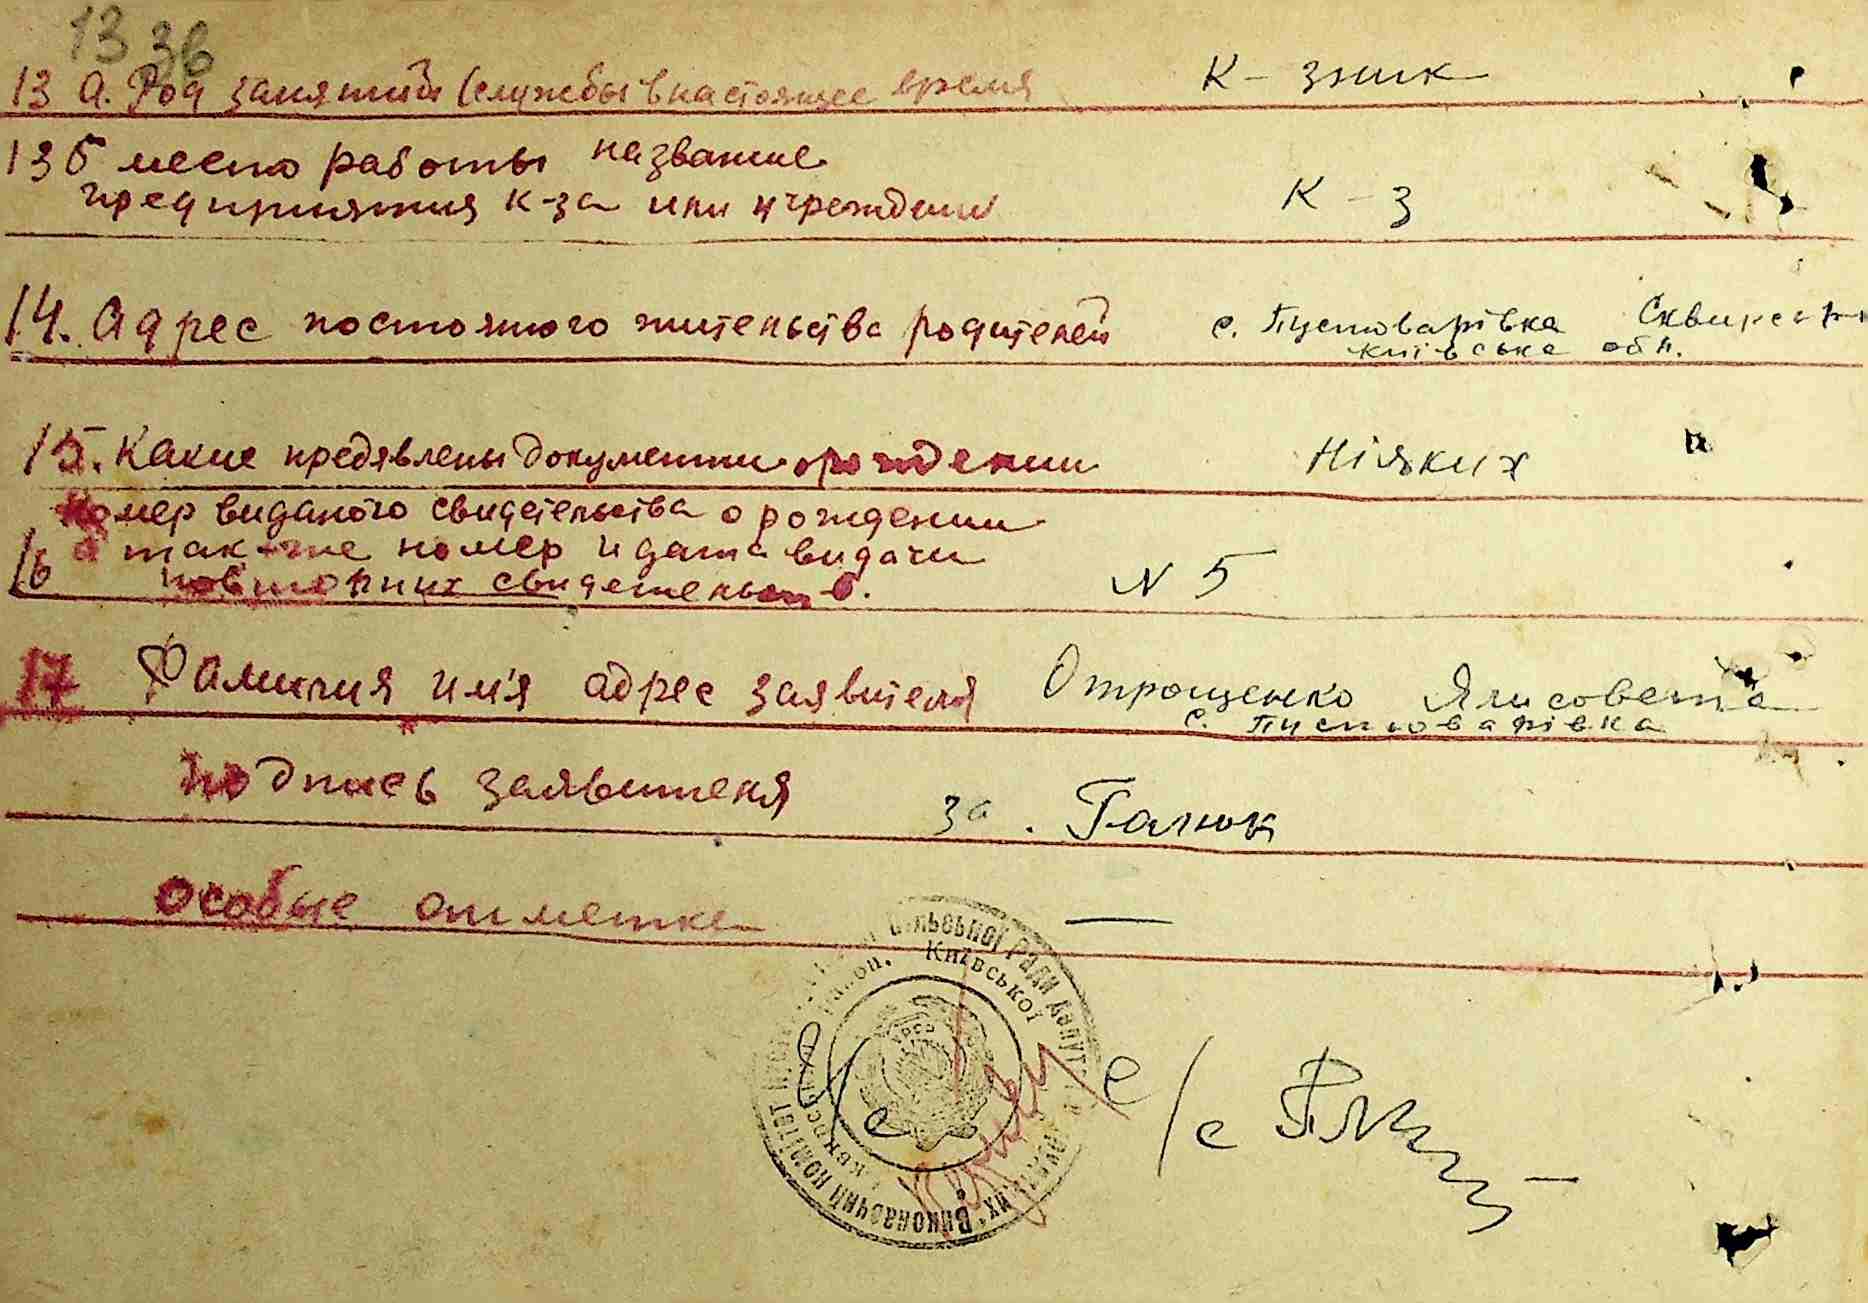 13 зв
13 а. Род занятий (службы в настоящее время К-зник
13 б место работы название
предприятия к-за или учреждени К-З
14. Адрес постояного жительства родителей с. Пустоварівка Сквирс р-н
київська обл.
15. Какие предявлены документи о рождении Ніяких
номер виданого свидетельства о рождении
16 а так-же номер и дата видачи
повторних свидетельств. N 5
17 Фамилия им'я адрес заявителя Отрощенко Ялисовета
с. Пустоварівка
подпись заявителя за. Галюк
особые отметке —
Виконавчий комітет сільської Ради депут
Київської
УРСР
с/с